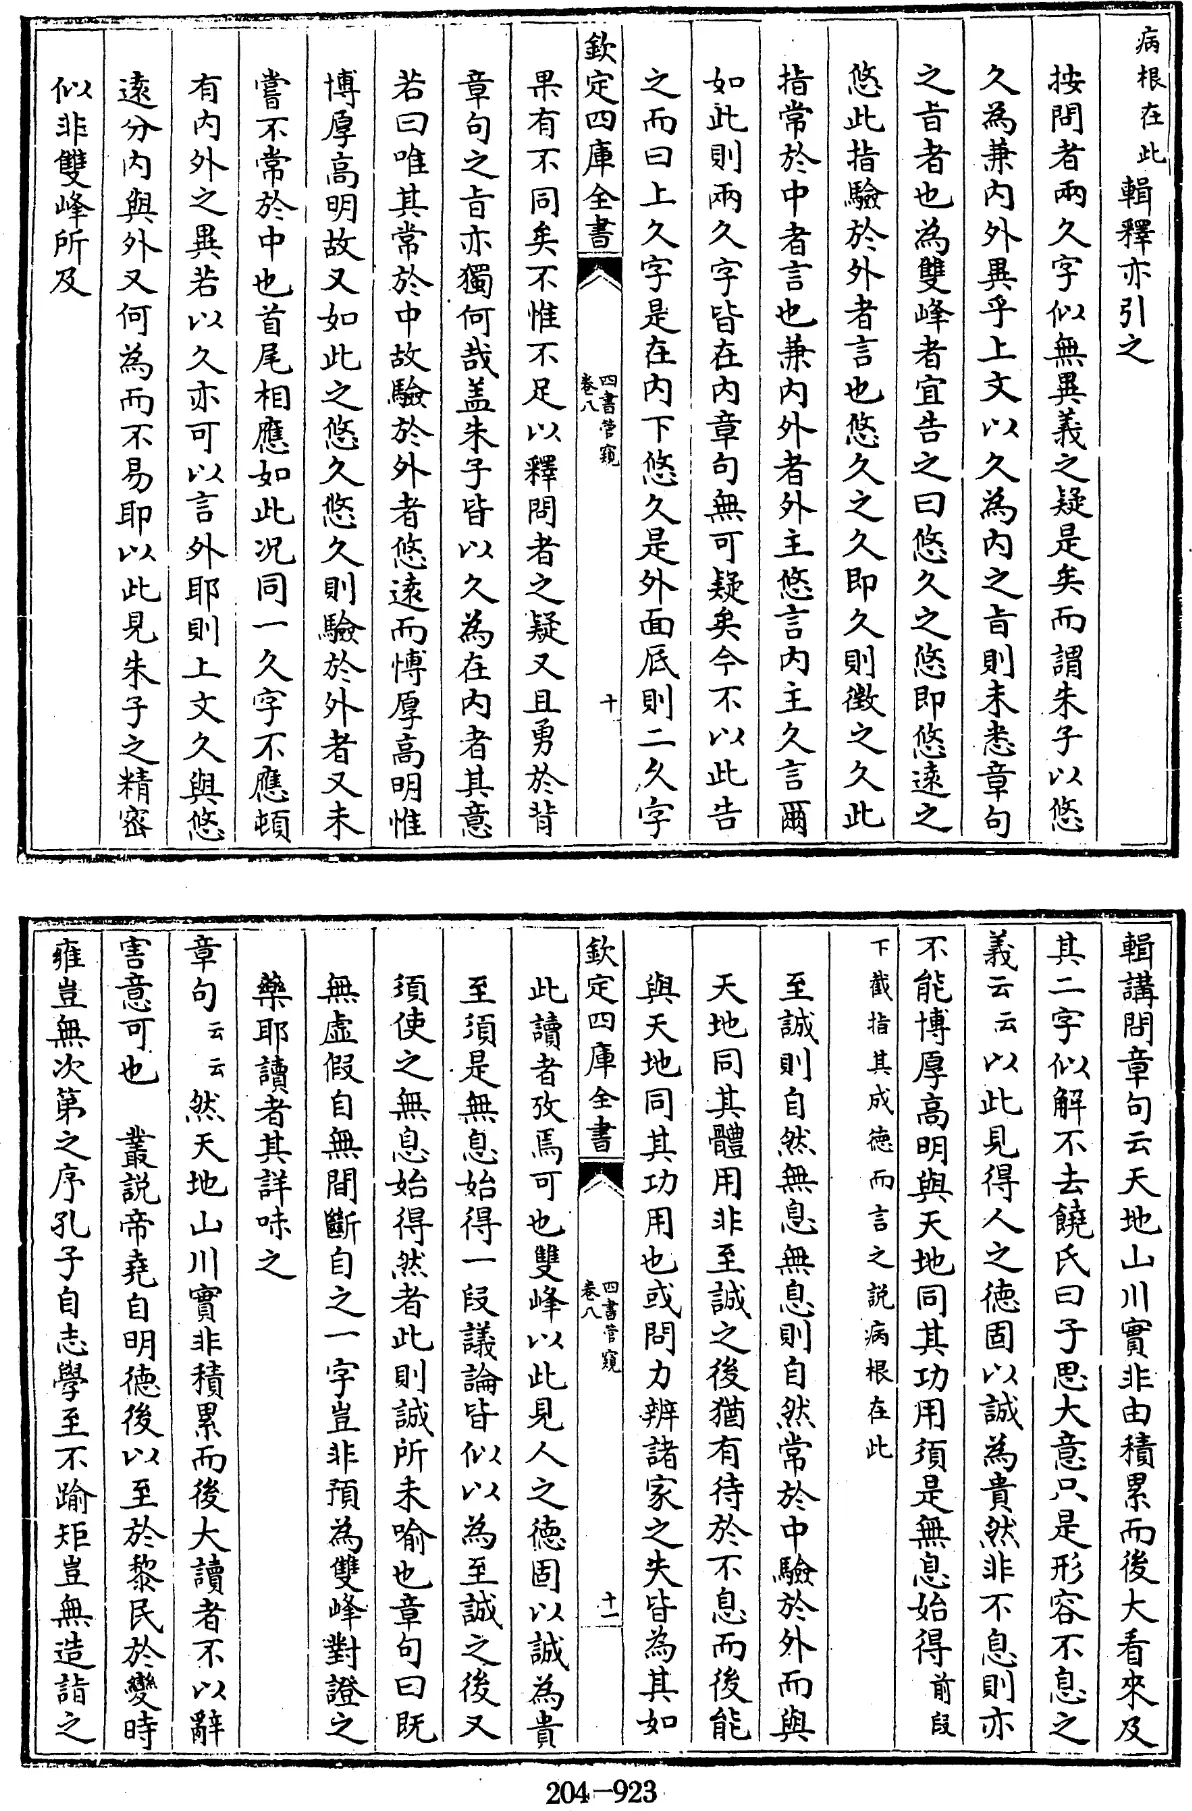 病根在此輯釋亦引之
按問者兩久字似無異義之疑是矣而謂朱子以悠
久為兼内外異乎上文以久為内之旨則未悉章句
之旨者也為雙峰者宜告之曰悠久之悠即悠遠之
悠此指驗於外者言也悠久之久即久則徴之久此
指常於中者言也兼内外者外主悠言内主久言爾
如此則兩久字皆在内章句無可疑矣今不以此告
之而曰上久字是在内下悠久是外面底則二久字
欽定四庫全書
四書管窺
卷八
十
果有不同矣不惟不足以釋問者之疑又且勇於背
章句之旨亦獨何哉盖朱子皆以久為在内者其意
若曰唯其常於中故驗於外者悠遠而愽厚高明惟
博厚高明故又如此之悠久悠久則驗於外者又未
嘗不常於中也首尾相應如此况同一久字不應頓
有内外之異若以久亦可以言外耶則上文久與悠
遠分内與外又何為而不易耶以此見朱子之精密
似非雙峰所及
輯講問章句云天地山川實非由積累而後大看來及
其二字似解不去饒氏曰子思大意只是形容不息之
義云云以此見得人之德固以誠為貴然非不息則亦
不能博厚高明與天地同其功用須是無息始得前段
下截指其成德而言之説病根在此
至誠則自然無息無息則自然常於中驗於外而與
天地同其體用非至誠之後猶有待於不息而後能
與天地同其功用也或問力辨諸家之失皆為其如
欽定四庫全書
四書管窺
卷八
十一
此讀者攷焉可也雙峰以此見人之德固以誠為貴
至須是無息始得一段議論皆似以為至誠之後又
須使之無息始得然者此則誠所未喻也章句曰既
無虚假自無間斷自之一字豈非預為雙峰對證之
藥耶讀者其詳味之
章句云云然天地山川實非積累而後大讀者不以辭
害意可也　叢説帝堯自明德後以至於黎民於變時
雍豈無次第之序孔子自志學至不踰矩豈無造詣之
204-923